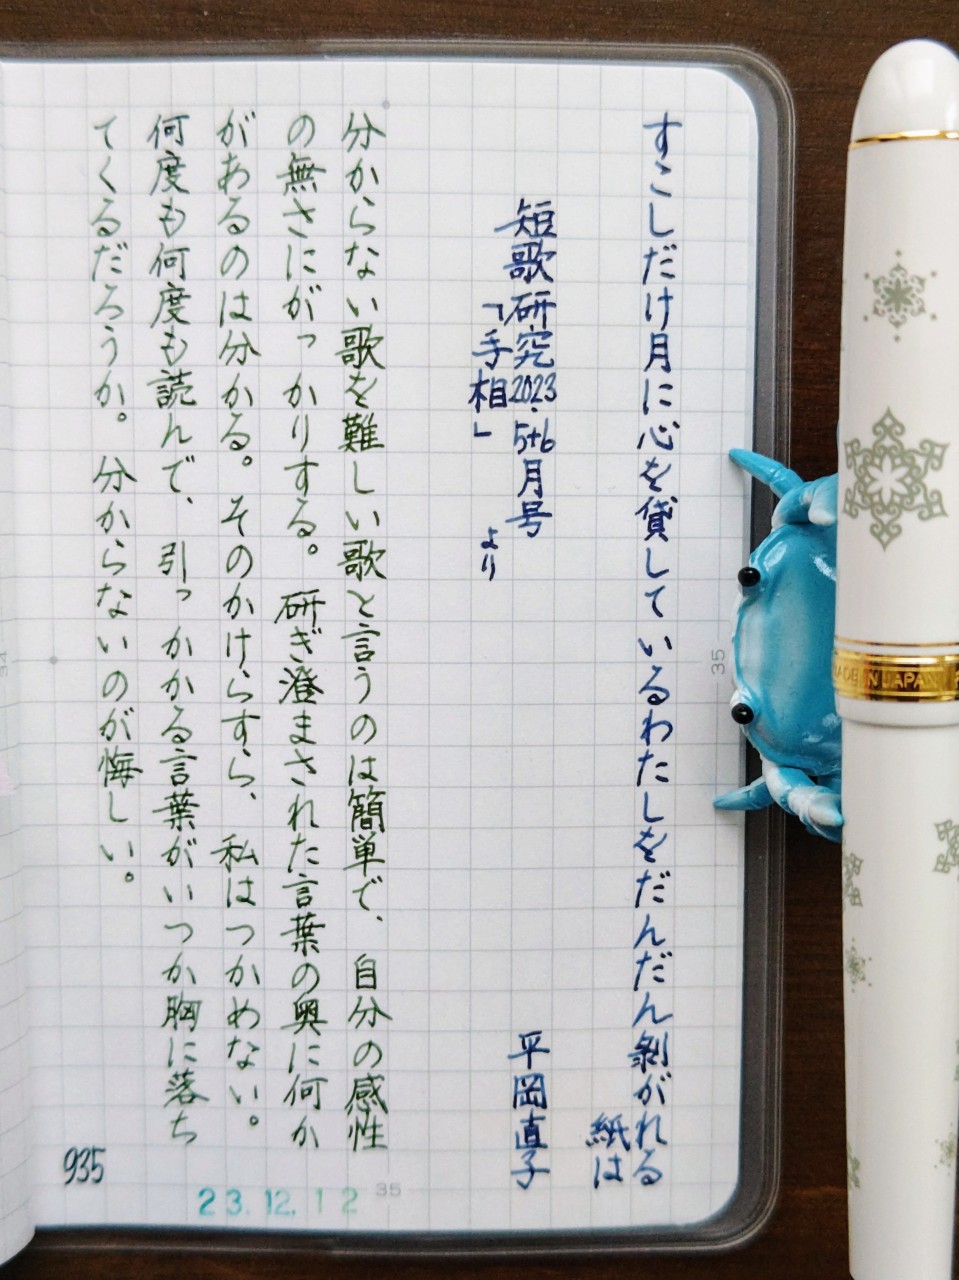 すこしだけ月に心を貸しているわたしをだんだん剝がれる
紙は
短歌研究2023.5+6月号
「手相」より
平岡直子
分からない歌を難しい歌と言うのは簡単で、自分の感性
の無さにがっかりする。研ぎ澄まされた言葉の奥に何か
があるのは分かる。そのかけらすら、私はつかめない。
何度も何度も読んで、引っかかる言葉がいつか胸に落ち
てくるだろうか。分からないのが悔しい。
935
23.12.12
35
35
MADE IN JAPAN